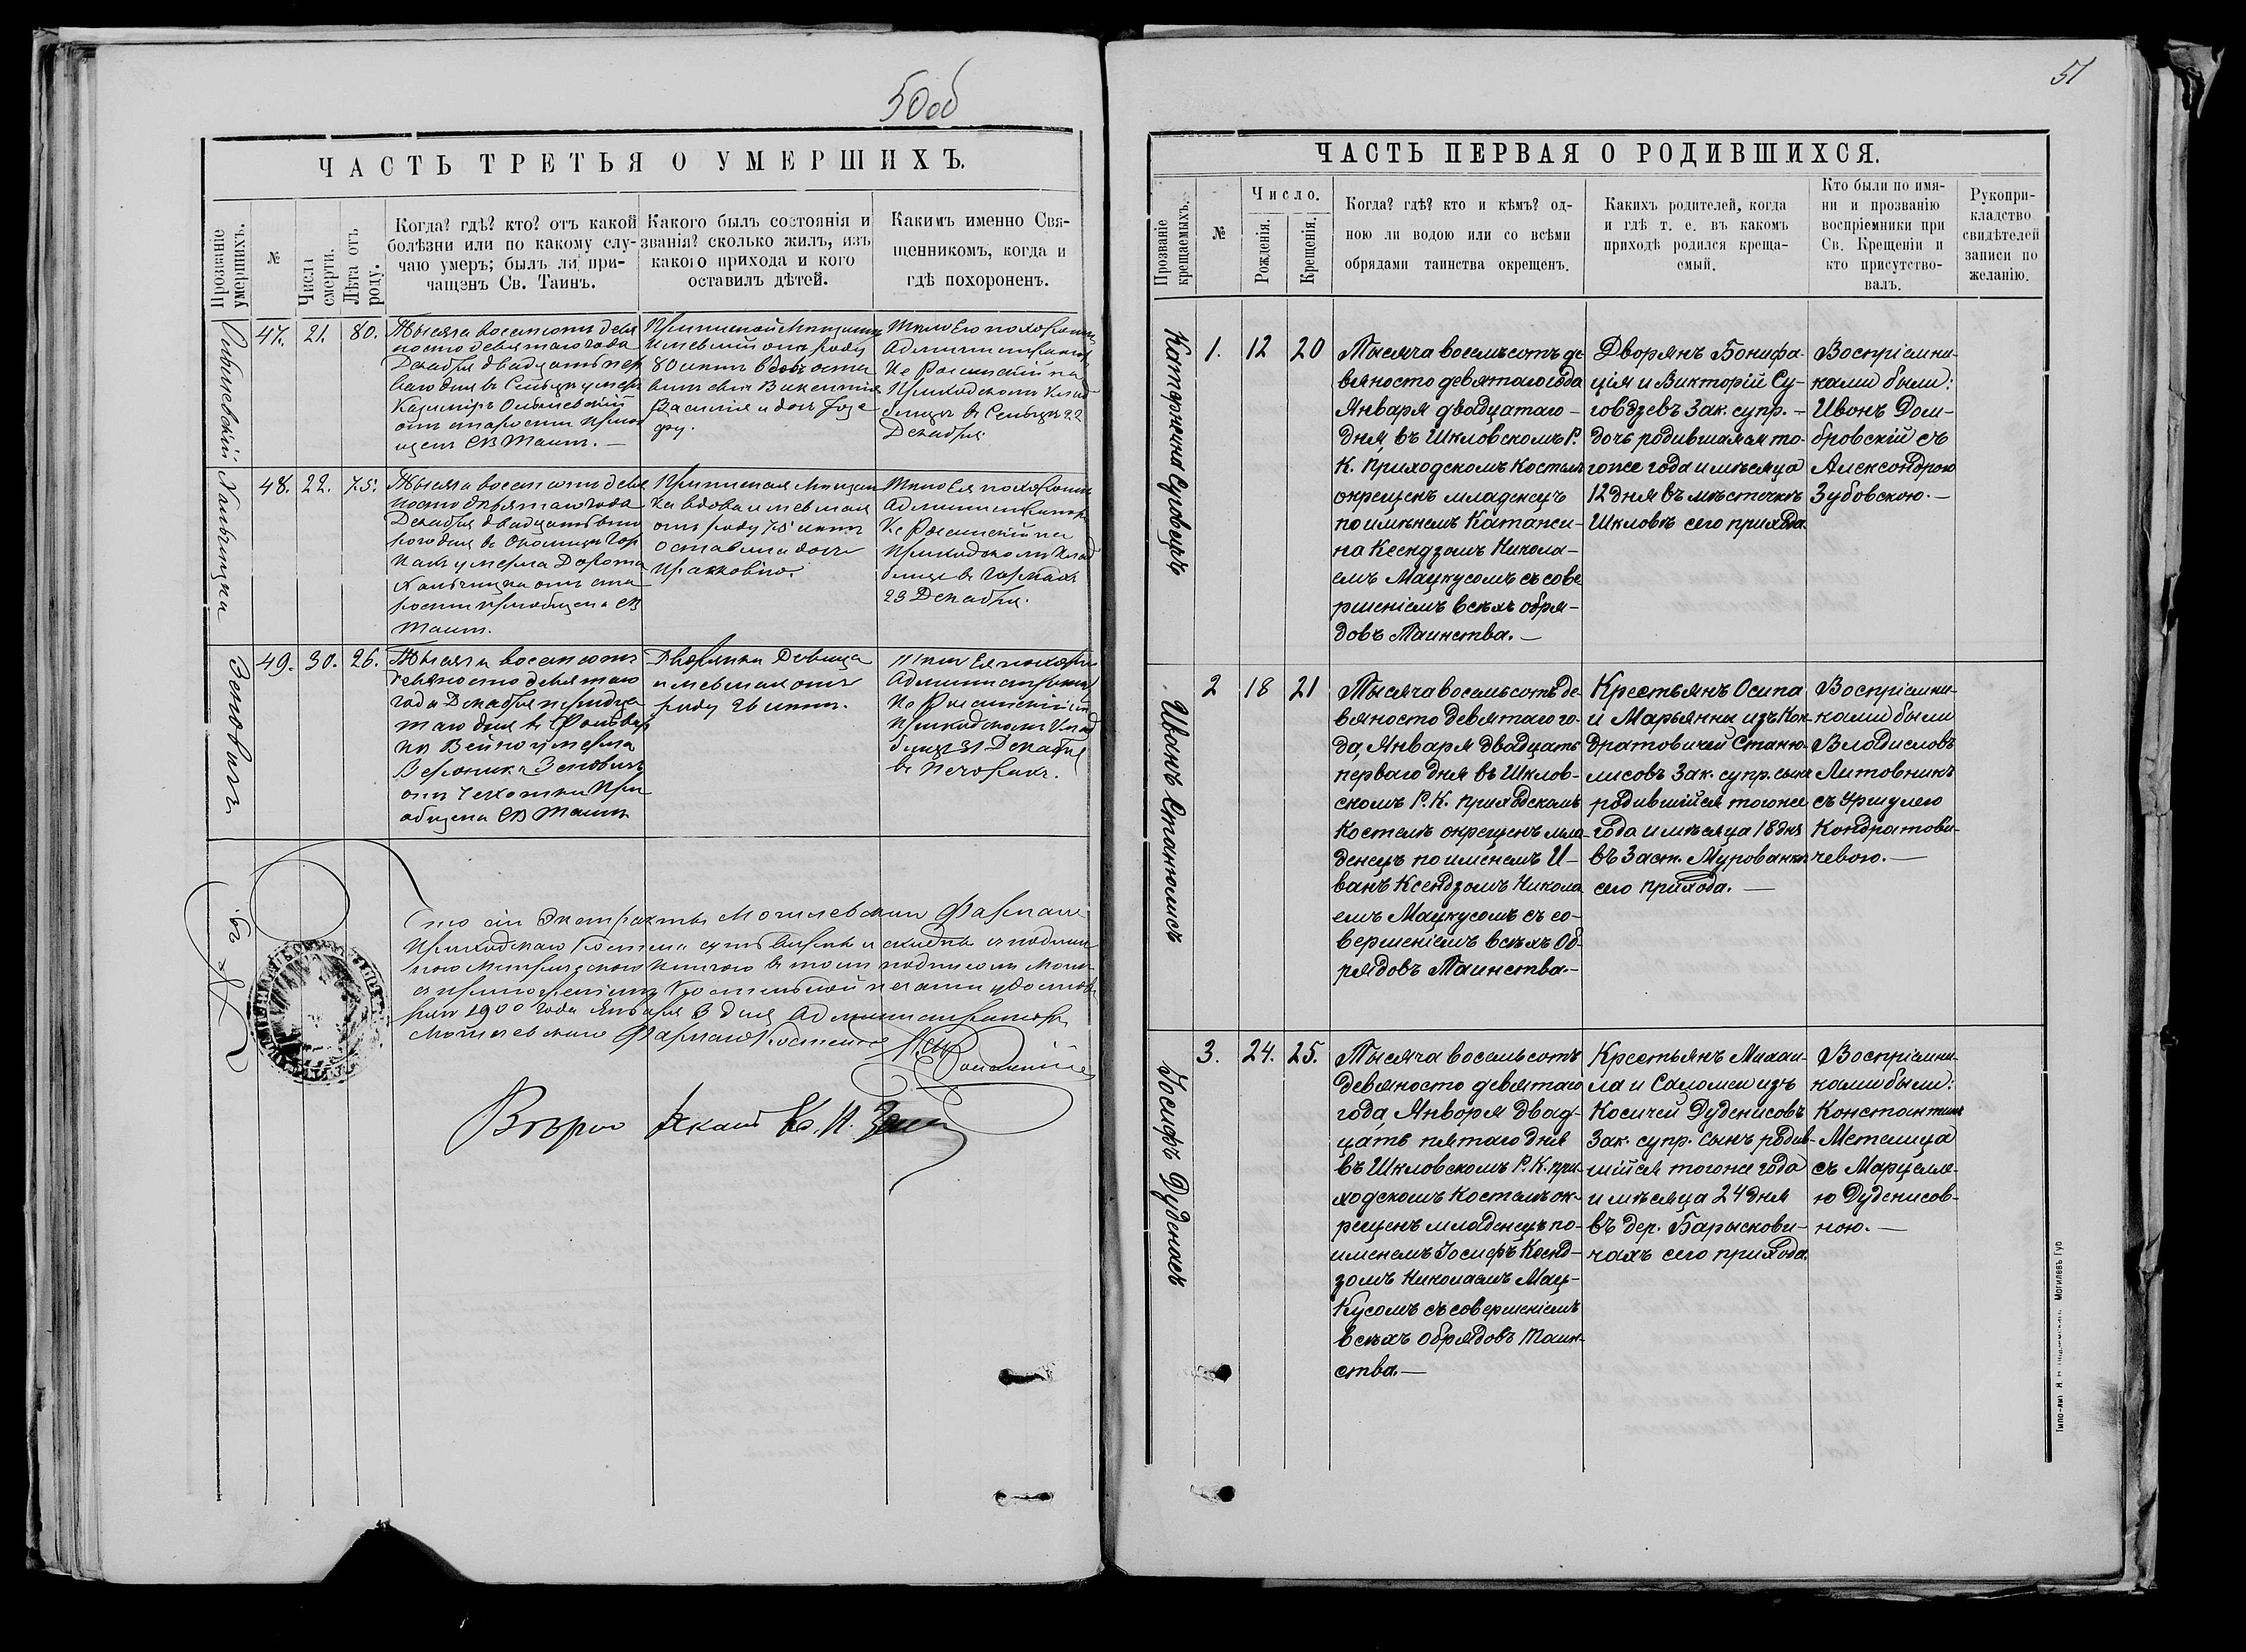 50об
ЧАСТЬ ТРЕТЬЯ О УМЕРШИХЪ.
Прозваніе умершихъ.
№
Числа смерти.
Лѣта отъ роду.
Когда? гдѣ? кто? отъ какой
болѣзни или по какому слу-
чаю умеръ; былъ ли при-
чащенъ Св. Таинъ.
Какого былъ состоянія и
званія? сколько жилъ, изъ
какого прихода и кого
оставилъ дѣтей.
Какимъ именно Свя-
щенникомъ, когда и
гдѣ похороненъ.
47.
21.
80.
Тысяча восемсотъ девя
носто девятаго года
Декабря двадцать пер
ваго дня въ
Казиміръ
отъ старости
щенъ СВ Таинъ. —
имѣвшій отъ роду
80 лѣтъ
Василія и дочь Юзе
фу.
Тѣло Его похоронено
Администраторъ
Приходскомъ Клад
бищѣ въ 22
Декабря.
Хальчицка
48.
22.
75.
Тысяча восемсотъ девя
носто девятаго года
Декабря двадцать вто
рого дня въ
умерла Дорота
Хальчицка отъ ста
рости приобщена СВ
Таинъ.
вдова имевшая
отъ роду 75 лѣтъ
оставила дочь
Тѣло Ея похоронено
Администраторъ
Приходскомъ Клад
бище въ
23 Декабря.
Зеновичъ
49.
30.
26.
Тысяча восемсотъ
девяносто девятаго
года Декабря тридца
таго дня въ Фольвар
кѣ Вейно умерла
Вероника Зеновичъ
отъ Чехотки При
общена СВ Таинъ
Дворянка Девица
имевшая отъ
роду 26 лѣтъ.
Тѣло Ея похорон
Администраторъ
Приходскомъ Клад
бищѣ 31 Декабря
въ Печорахъ.
Что сіи Экстракты Могилевскаго Фарнаго
Приходскаго Костела суть вѣрны и сходны съ подлин
ною Метрическою Книгою въ томъ подписомъ Моимъ
съ приложеніемъ Костельной печати удостовѣ
ряю 1900 Года Января 3 дня Администраторъ
Могилевскаго Фарнаго Костела
Кс.
Вѣрно Деканъ Кс.
51
ЧАСТЬ ПЕРВАЯ О РОДИВШИХСЯ.
Прозваніе крещаемыхъ.
№
Число.
Рожденія.
Крещенія.
Когда? гдѣ? кто и кѣмъ? од-
ною ли водою или со всѣми
обрядами таинства окрещенъ.
Какихъ родителей, когда
и гдѣ т. е. въ какомъ
приходѣ родился креща-
емый.
Кто были по имя-
ни и прозванію
воспріемники при
Св. Крещеніи и
кто присутство-
валъ.
Рукопри-
кладство
свидѣтелей
записи по
желанію.
1.
12
20
Тысяча восемьсотъ де
вяносто девятаго года
Января двадцатаго —
дня, въ Шкловскомъ Р.
К. Приходскомъ Костелѣ
окрещенъ младенецъ
по имѣнемъ Катажи-
на Ксендзомъ Никола-
емъ Мацкусомъ съ сове
ршеніемъ всѣхъ обря-
довъ Таинства. —
Дворянъ Бонифа-
ція и Викторіи Су-
говдзевъ Зак. супр. —
дочь родившаяся то-
гоже года и мѣсяца
12 дня въ мѣстечкѣ
Шкловѣ сего прихода.
Воспріемни-
ками были:
Иванъ Дом-
бровскій съ
Александрою
Зубовскою. —
Иванъ Станюлисъ
2
18
21
Тысяча восемьсотъ де-
вяносто девятаго го-
да, Января двадцать
перваго дня въ Шклов-
скомъ Р. К. приходскомъ
Костелѣ окрещенъ мла-
денецъ по именемъ И-
ванъ Ксендзомъ Никола
емъ Мацкусомъ съ со-
вершеніемъ всѣхъ Об-
рядовъ Таинства. —
Крестьянъ Осипа
и Марьянны изъ Кон-
дратовичей Станю-
лисовъ Зак. супр. сынъ
родившійся тогоже
года и мѣсяца 18 дня
въ Заст. Мурованкѣ
сего прихода. —
Воспріемни-
ками были
Владиславъ
Литовникъ
съ Уршулею
Кондратови-
чевою. —
Іосифъ Дуденасъ
3.
24.
25.
Тысяча восемьсотъ
девяносто девятаго
года, Января двад-
цать пятаго дня
въ Шкловскомъ Р. К. при-
ходскомъ Костелѣ ок-
рещенъ младенецъ по-
именемъ Іосифъ Ксенд-
зомъ Николаемъ Мац-
кусомъ съ совершеніемъ
всѣхъ обрядовъ Таин-
ства. —
Крестьянъ Михаи-
ла и Саломеи изъ
Косичей Дуденисовъ
Зак. супр. сынъ родив-
шійся тогоже года
и мѣсяца 24 дня
въ дер. Барыскови-
чахъ сего прихода.
Воспріемни-
ками были:
Константинъ
Метелица
съ Марцелле-
ю Дуденисов-
ною. —
Типо-лит. Могилевъ Губ